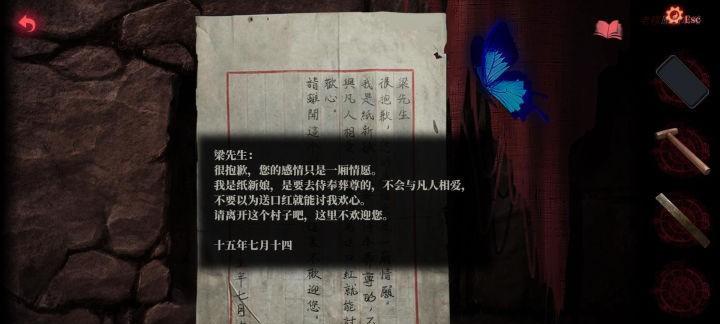 梁先生：
很抱歉，您的感情只是一厢情愿。
我是纸新娘，是要去侍奉葬尊的，不会与凡人相爱，
不要以为送口红就能讨我欢心。
请离开这个村子吧，这里不欢迎您。
十五年七月十四
梁先生
很抱歉，
情願。
我是紙新
尊的，
與凡人相
口紅就能討
歡心。
請離開這
不歡迎您。
年七月
Esc